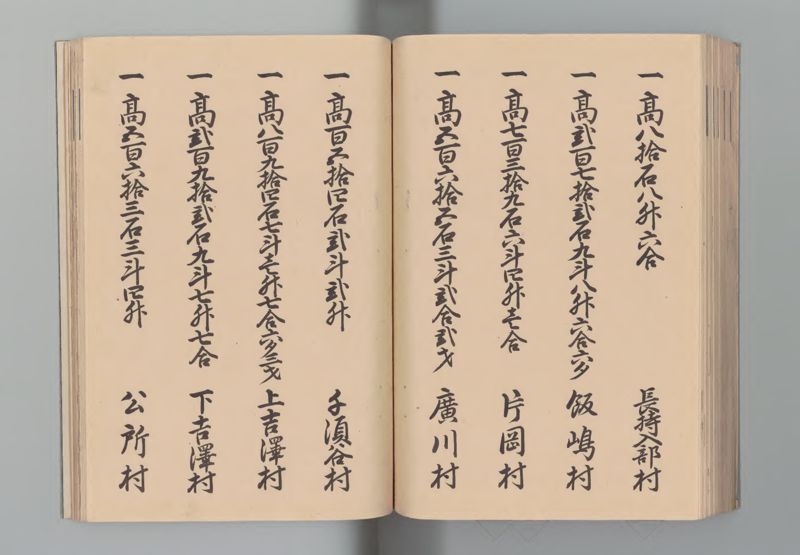 一高八拾石八升六合 長持入部村
一高弐百七拾弐石九斗八升六合六夕 飯嶋村
一高七百三拾九石六斗四升壱合 片岡村
一高五百六拾五石三斗弐合弐才 廣川村
一高百五拾四石弐斗弐升 千須谷村
一高八百九拾四石七斗壱升七合六夕三才 上吉澤村
一高弐百九拾弐石九斗七升七合 下吉澤村
一高五百六拾三石三斗四升 公所村